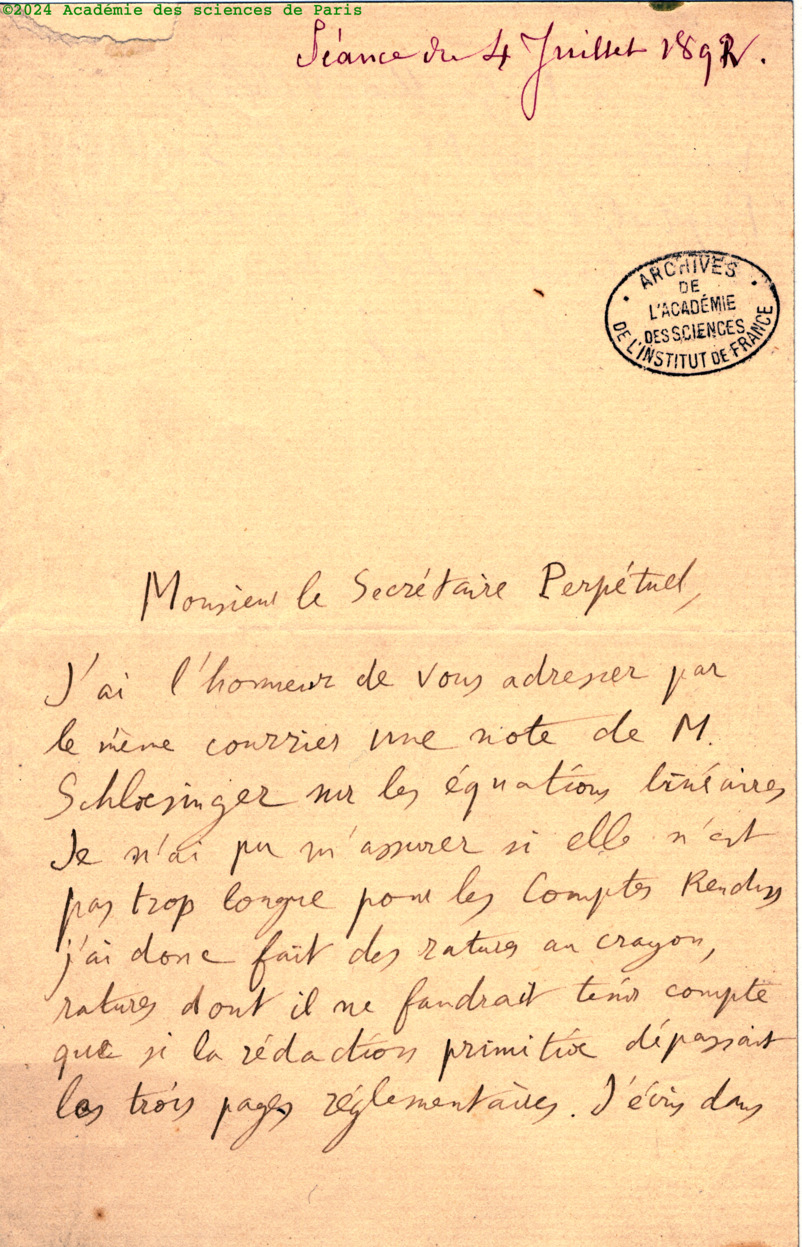 ©2024 Académie des sciences de Paris
Séance du 4 Juillet 1892.
ARCHIVES
DE
L'ACADÉMIE
DES SCIENCES
DE L'INSTITUT DE FRANCE
Monsieur le Secrétaire Perpétuel,
J'ai l'honneur de vous adresser par
le même courrier une note de M.
Schlesinger sur les équations linéaires
Je n'ai pu m'assurer si elle n'est
pas trop longue pour les Comptes Rendus
j'ai donc fait des ratures au crayon,
ratures dont il ne faudrait tenir compte
que si la rédaction primitive dépassait
les trois pages réglementaires. J'écris dans